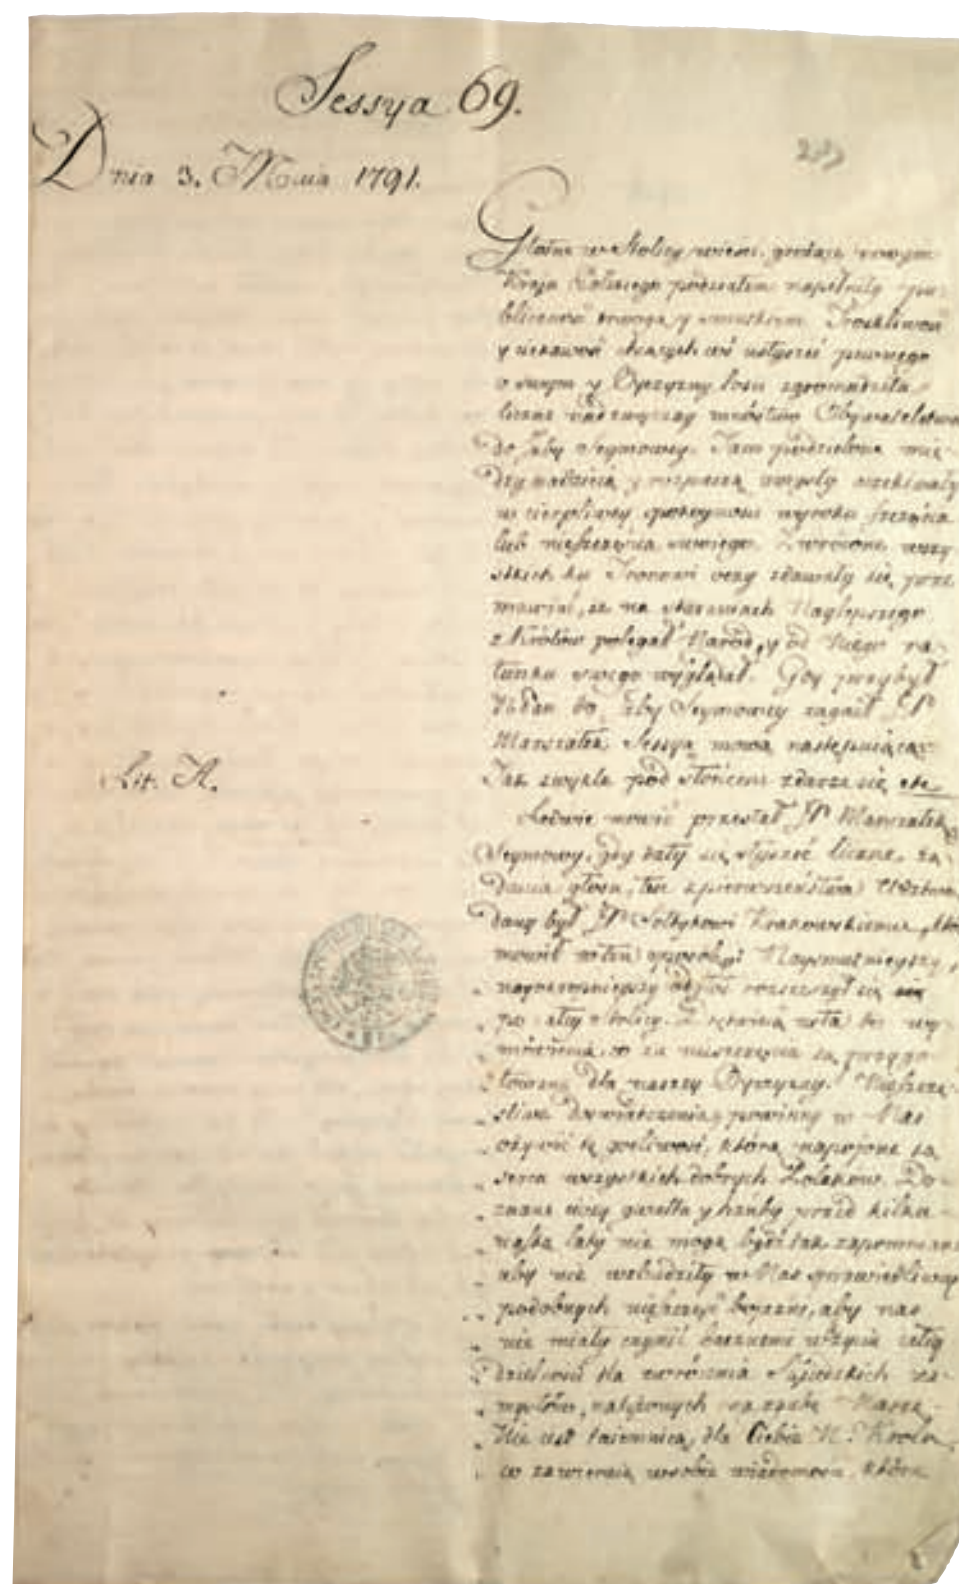 Sessya 69.
Dnia 3. Maia 1791.
Głośne w Stolicy wieści, grożące nowym
Kraju Polskiego podziałem napełniły pu-
bliczność trwogą y smutkiem. Troskliwość
y ciekawość chcących coś usłyszeć pewnego
o swym y Oyczyzny losu zgromadziła
liczne nadzwyczay mnóstwo Obywatelstwa
do Izby Seymowey. Tam podzielone mię-
dzy nadzieią y rozpaczą umysły oczekiwały
w cierpliwey spokoyności wyroku szczęścia
lub nieszczęścia swoiego. Zwrócone wszy-
stkich ku Tronowi oczy zdawały się prze
mawiać, że na staraniach Naylepszego
z Królów polegał Naród, y od niego ra-
tunku swego wyglądał. Gdy przybył
Pan do Izby Seymowey zagaił JP
Marszałek Sessyą mową następuiącą:
Lit. A.
Jak zwykle pod słońcem zdarza się etc.
Ledwie mówić przestał JP Marszałek
Seymowy, gdy dały się słyszeć liczne żą-
dania głosu, ten z pierwszeństwa
dany był JP Sołtykowi Krakowskiemu, któ
mówił w ten sposób: Naysmutnieyszy,
odgłos rozszedł się
po całey Stolicy. Z usta do wy-
mówienia, co za nieszczęścia są przygo-
towane dla naszey Oyczyzny. Nieszczę
śliwe doświadczenia powinny w Nas
ożywić tę gorliwość, którą napoione są
serca wszystkich dobrych Polaków. Do-
znane gwałta y hańby przed kilku-
nastą laty nie mogą bydź tak zapomniane
aby nie wzbudziły w Nas sprawiedliwey
podobnych nieszczęść boiaźni, aby nas
nie miały czynić
dzielności dla zwrócenia Sąsiedzkich za-
mysłów, na Naszę.
Nie iest taiemnicą, dla Ciebie N. Królu,
co zawieraią w sobie wiadomości, które